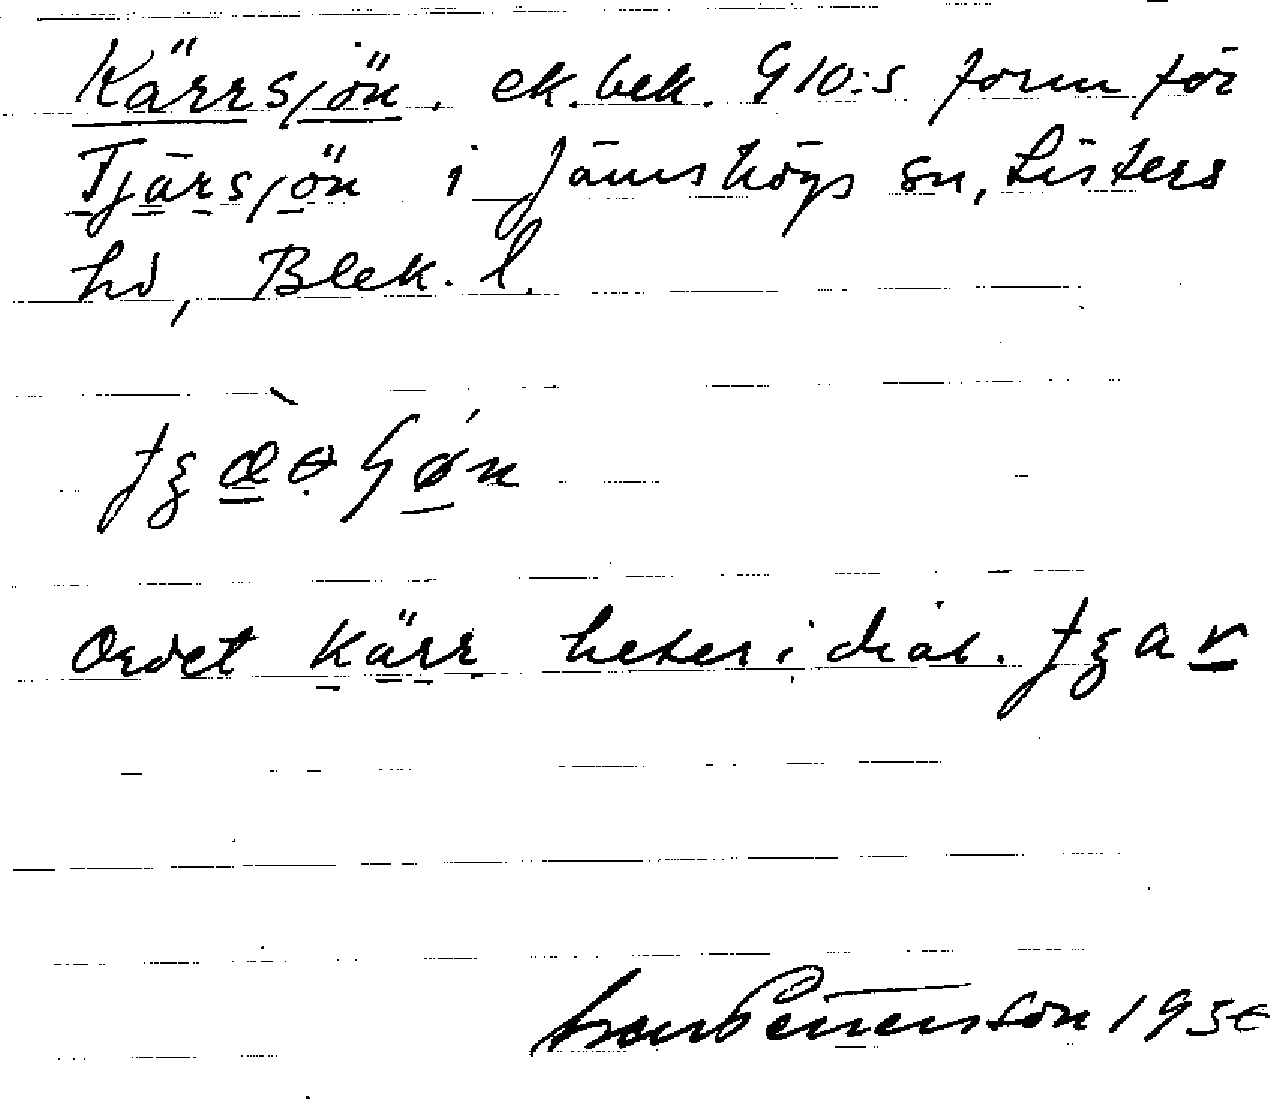 Kärrsjön. ek.bek. G 10:s form för
Tjärsjön i Jämshögs sn, Listers
hd, Blek. l.
Ordet kärr heter i dial.
Pettersson 195